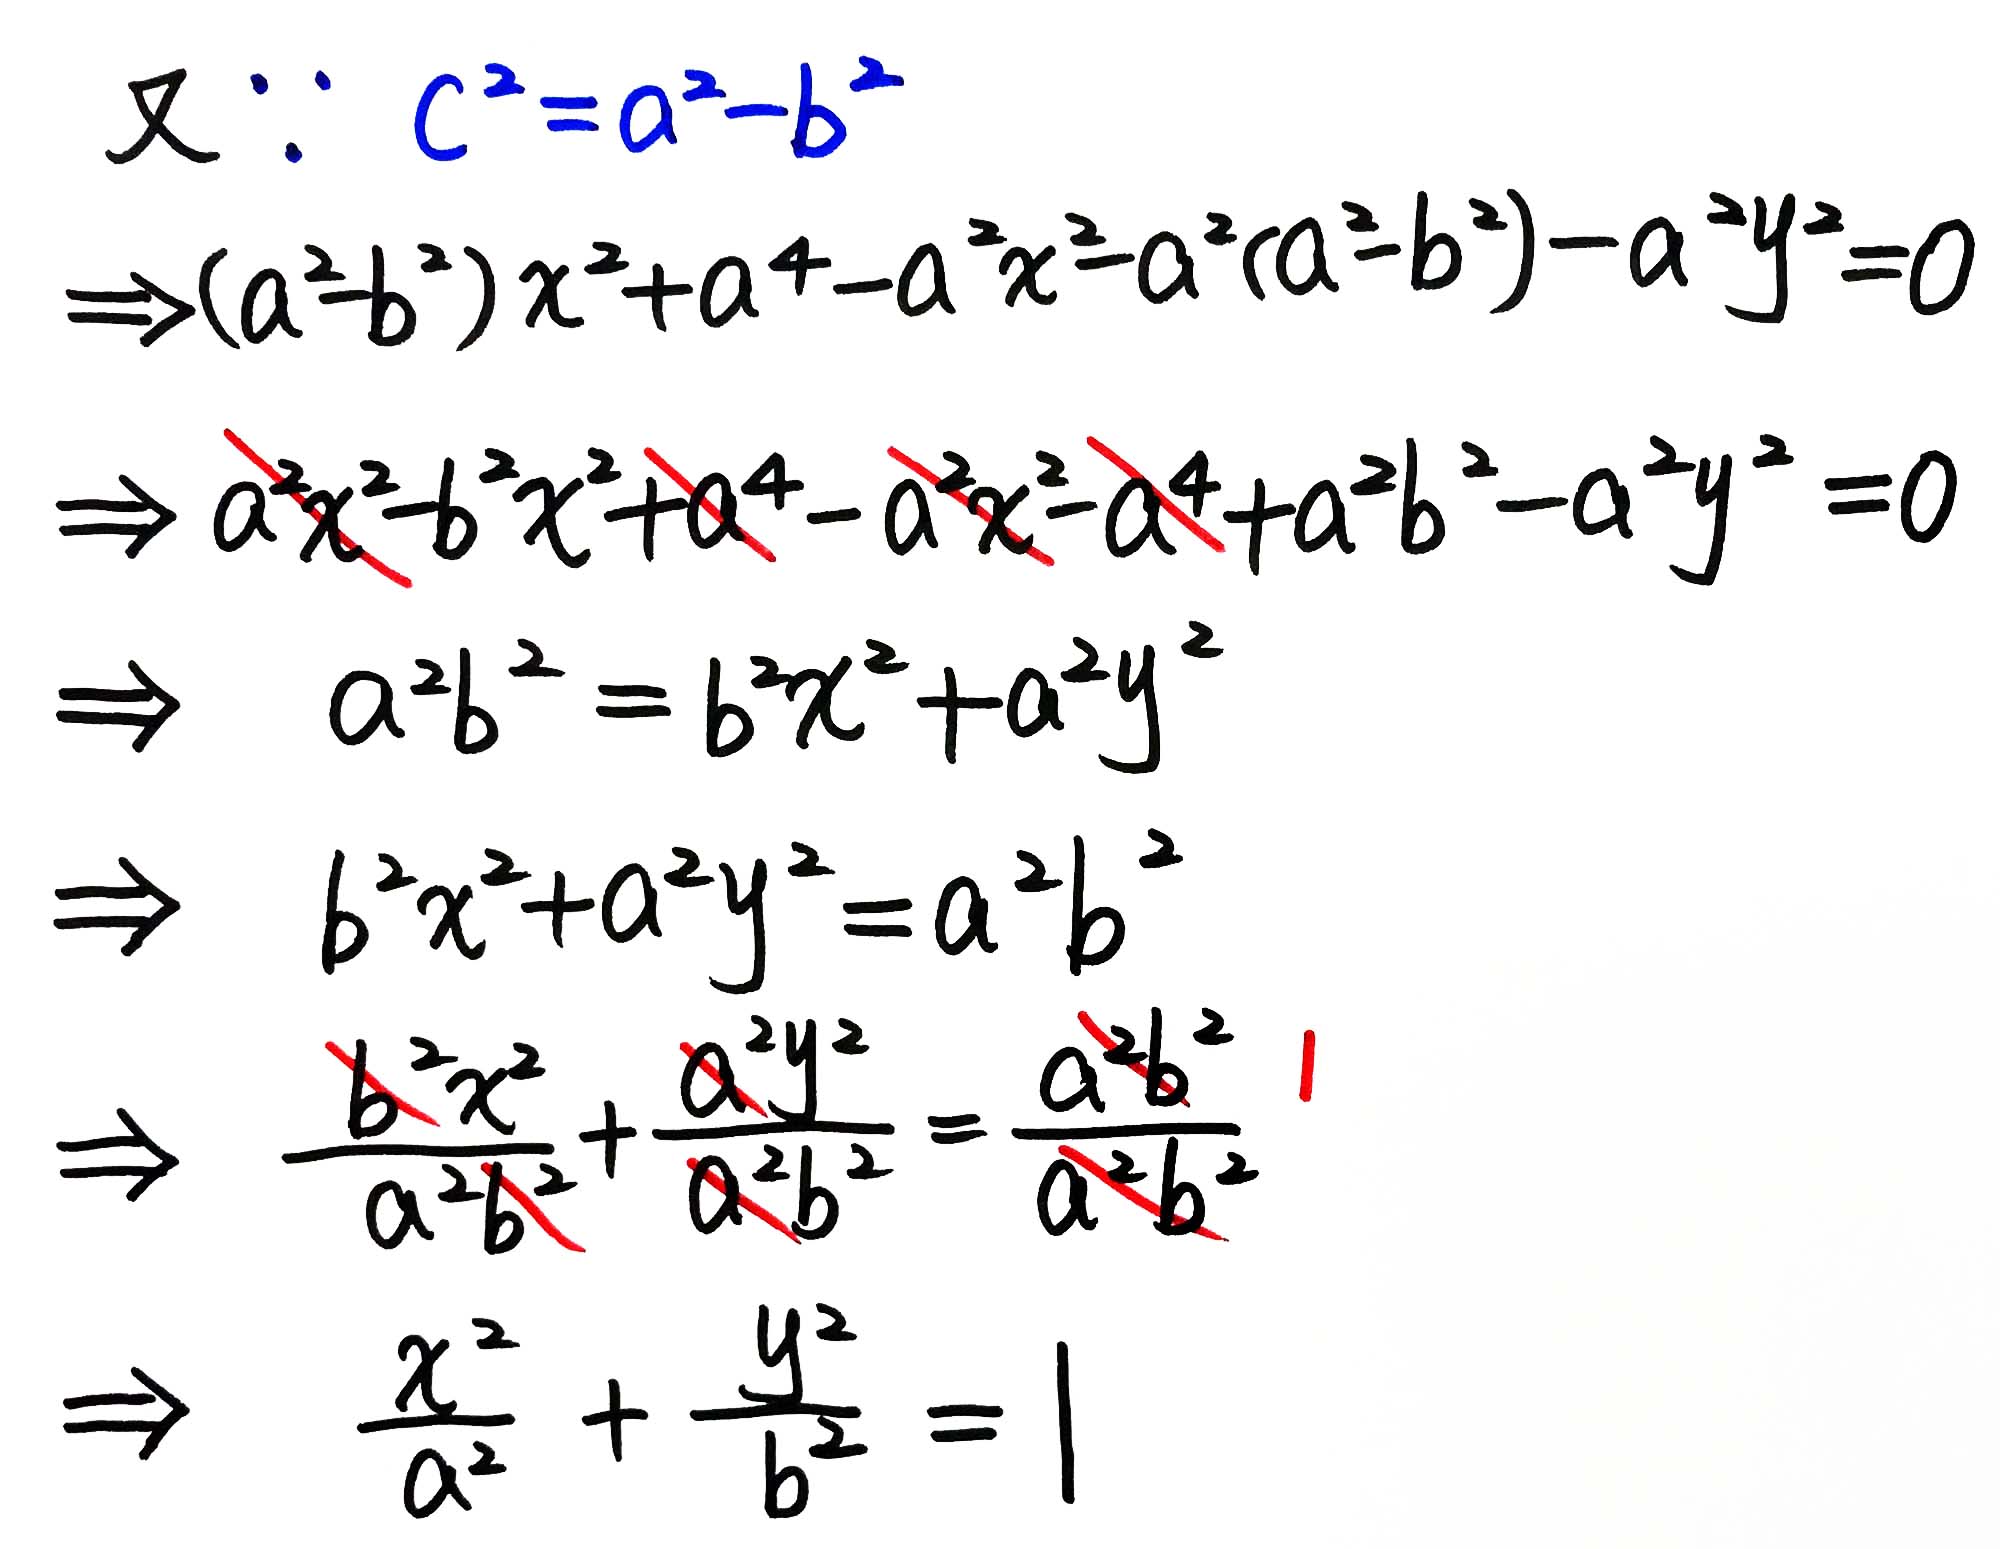 又∵ c²=a²-b²
⇒(a²-b²)x²+a⁴-a²x²-a²(a²-b²)-a²y²=0
⇒ a²x²-b²x²+a⁴-a²x²-a⁴+a²b²-a²y²=0
⇒ a²b²=b²x²+a²y²
⇒ b²x²+a²y²=a²b²
⇒ b²x²/a²b² + a²y²/a²b² = a²b²/a²b² 1
⇒ x²/a² + y²/b² = 1